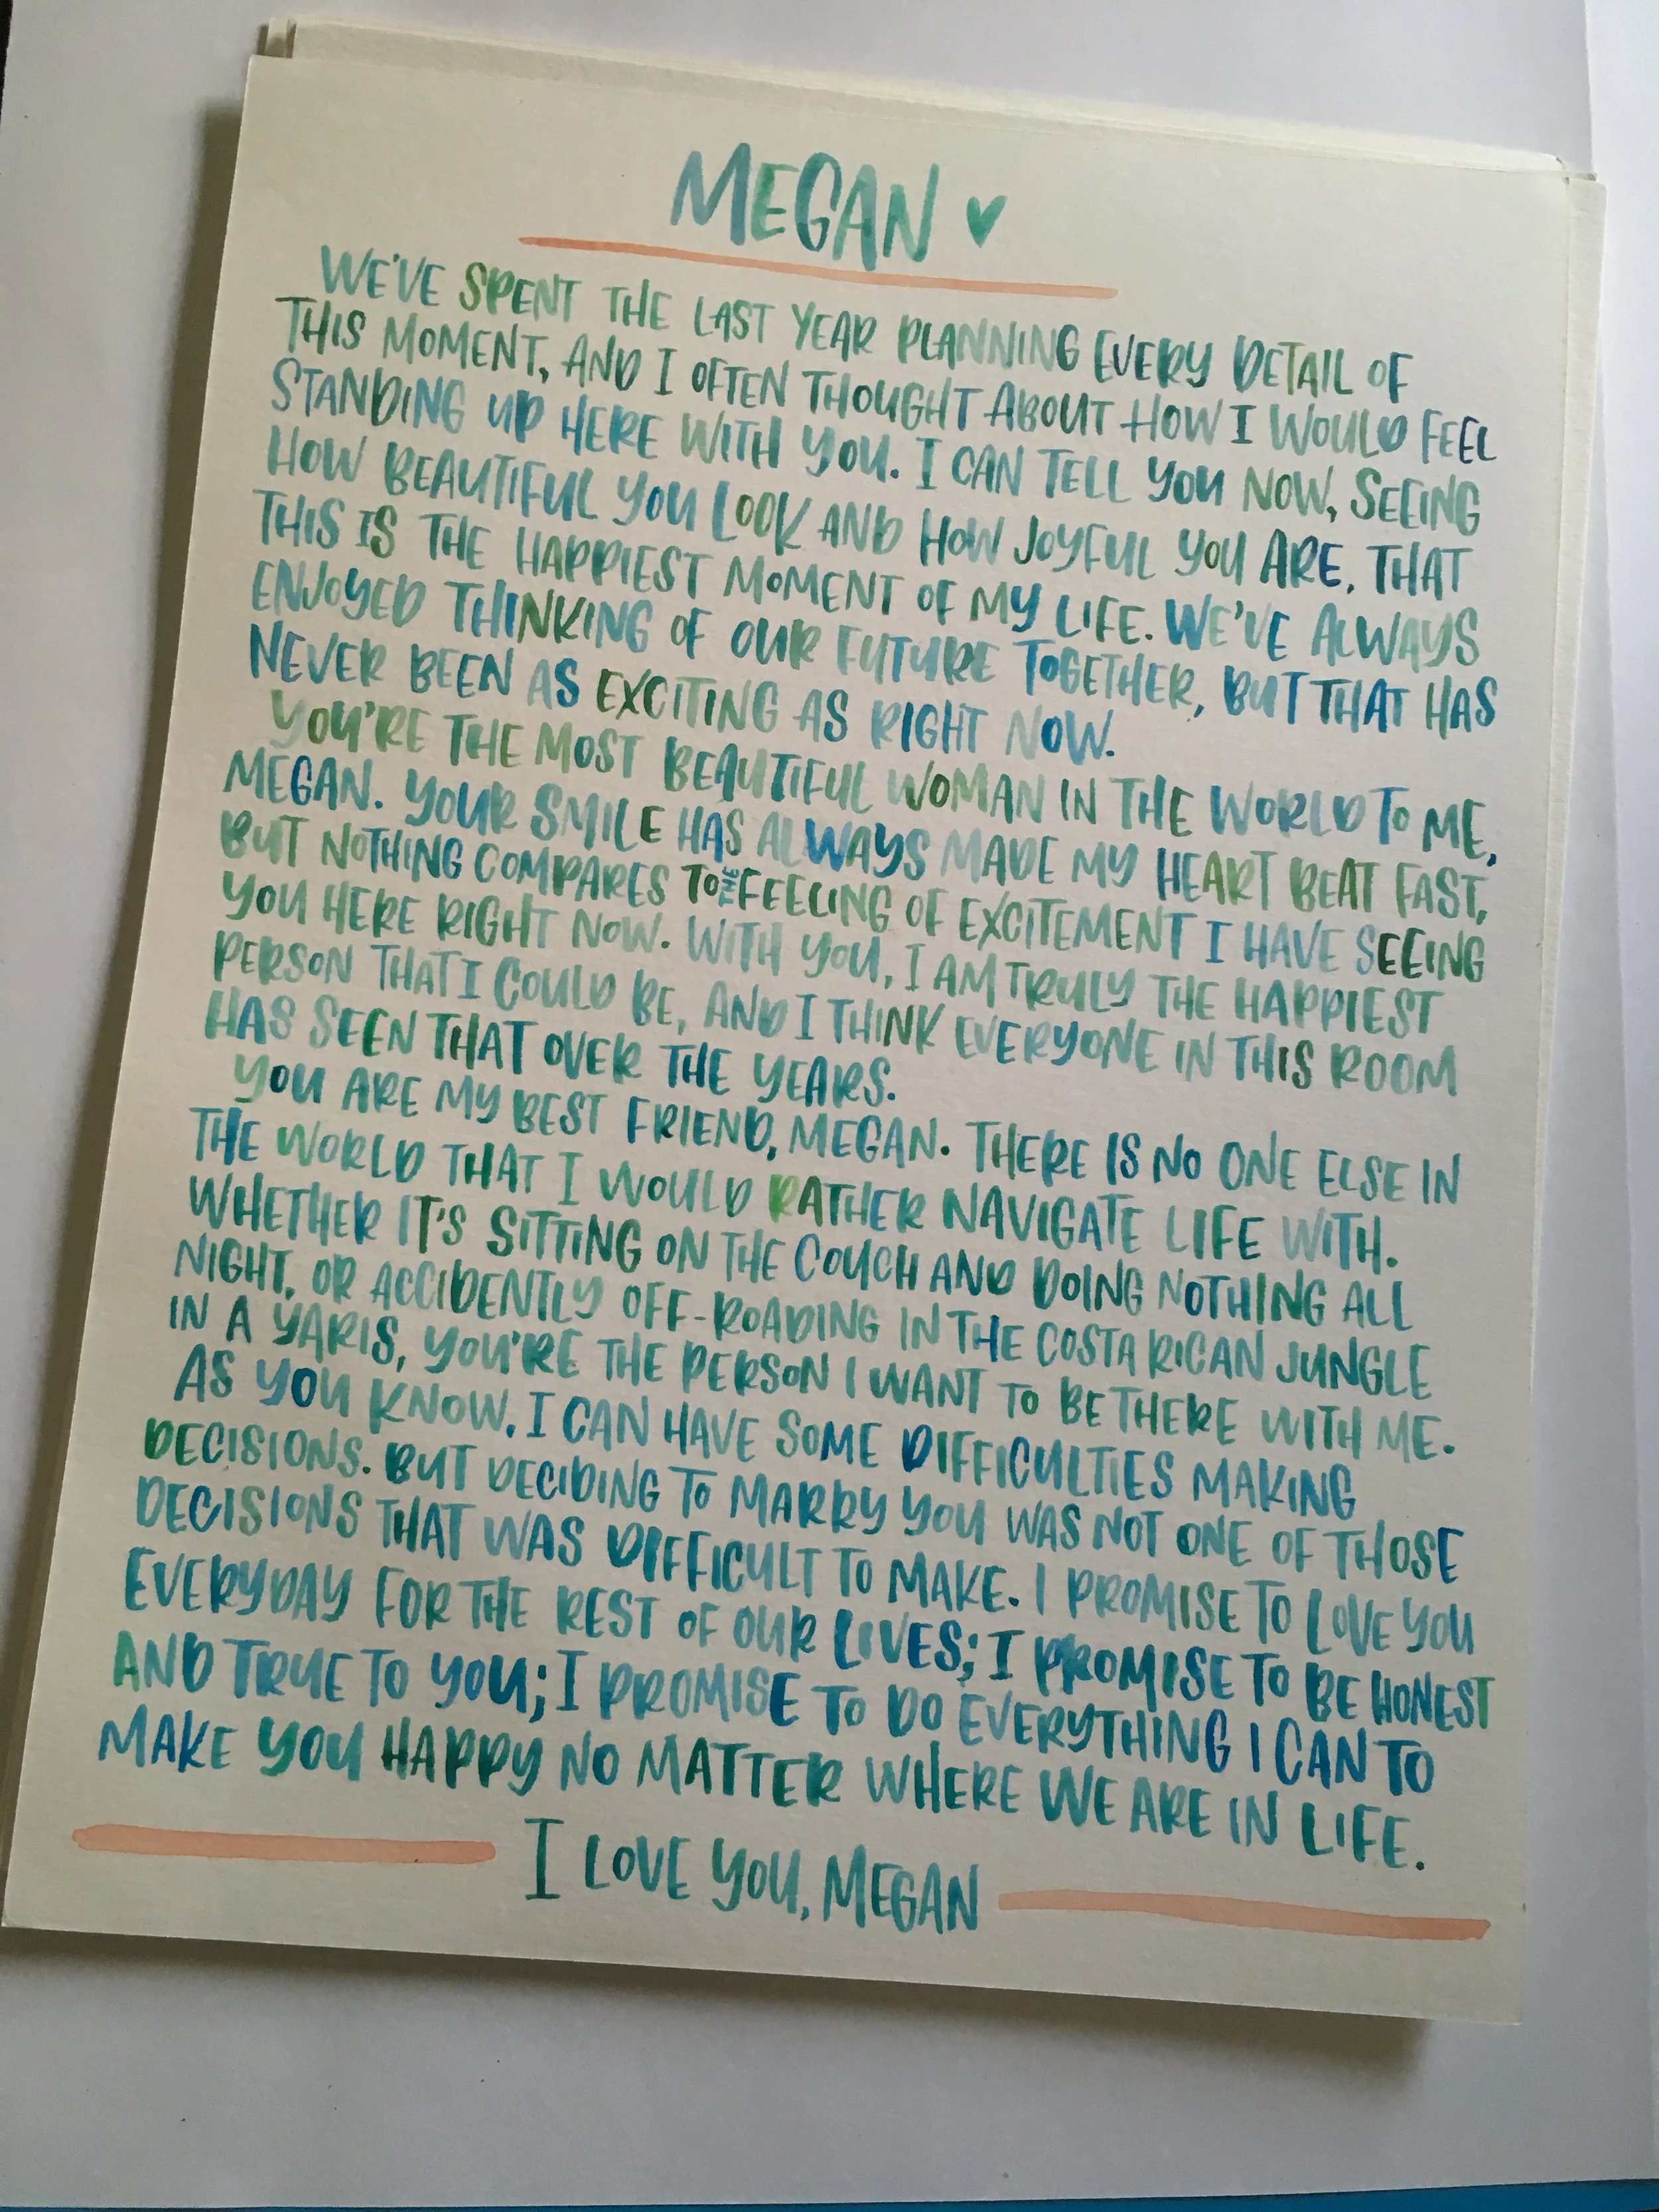 MEGAN ♥
WE'VE SPENT THE LAST YEAR PLANNING EVERY DETAIL OF
THIS MOMENT, AND I OFTEN THOUGHT ABOUT HOW I WOULD FEEL
STANDING UP HERE WITH YOU. I CAN TELL YOU NOW, SEEING
HOW BEAUTIFUL YOU LOOK AND HOW JOYFUL YOU ARE, THAT
THIS IS THE HAPPIEST MOMENT OF MY LIFE. WE'VE ALWAYS
ENJOYED THINKING OF OUR FUTURE TOGETHER, BUT THAT HAS
NEVER BEEN AS EXCITING AS RIGHT NOW.
YOU'RE THE MOST BEAUTIFUL WOMAN IN THE WORLD TO ME,
MEGAN. YOUR SMILE HAS ALWAYS MADE MY HEART BEAT FAST,
BUT NOTHING COMPARES TO THE FEELING OF EXCITEMENT I HAVE SEEING
YOU HERE RIGHT NOW. WITH YOU, I AM TRULY THE HAPPIEST
PERSON THAT I COULD BE, AND I THINK EVERYONE IN THIS ROOM
HAS SEEN THAT OVER THE YEARS.
YOU ARE MY BEST FRIEND, MEGAN. THERE IS NO ONE ELSE IN
THE WORLD THAT I WOULD RATHER NAVIGATE LIFE WITH.
WHETHER IT'S SITTING ON THE COUCH AND DOING NOTHING ALL
NIGHT, OR ACCIDENTLY OFF-ROADING IN THE COSTA RICAN JUNGLE
IN A YARIS, YOU'RE THE PERSON I WANT TO BE THERE WITH ME.
AS YOU KNOW, I CAN HAVE SOME DIFFICULTIES MAKING
DECISIONS. BUT DECIDING TO MARRY YOU WAS NOT ONE OF THOSE
DECISIONS THAT WAS DIFFICULT TO MAKE. I PROMISE TO LOVE YOU
EVERYDAY FOR THE REST OF OUR LIVES; I PROMISE TO BE HONEST
AND TRUE TO YOU; I PROMISE TO DO EVERYTHING I CAN TO
MAKE YOU HAPPY NO MATTER WHERE WE ARE IN LIFE.
I LOVE YOU, MEGAN